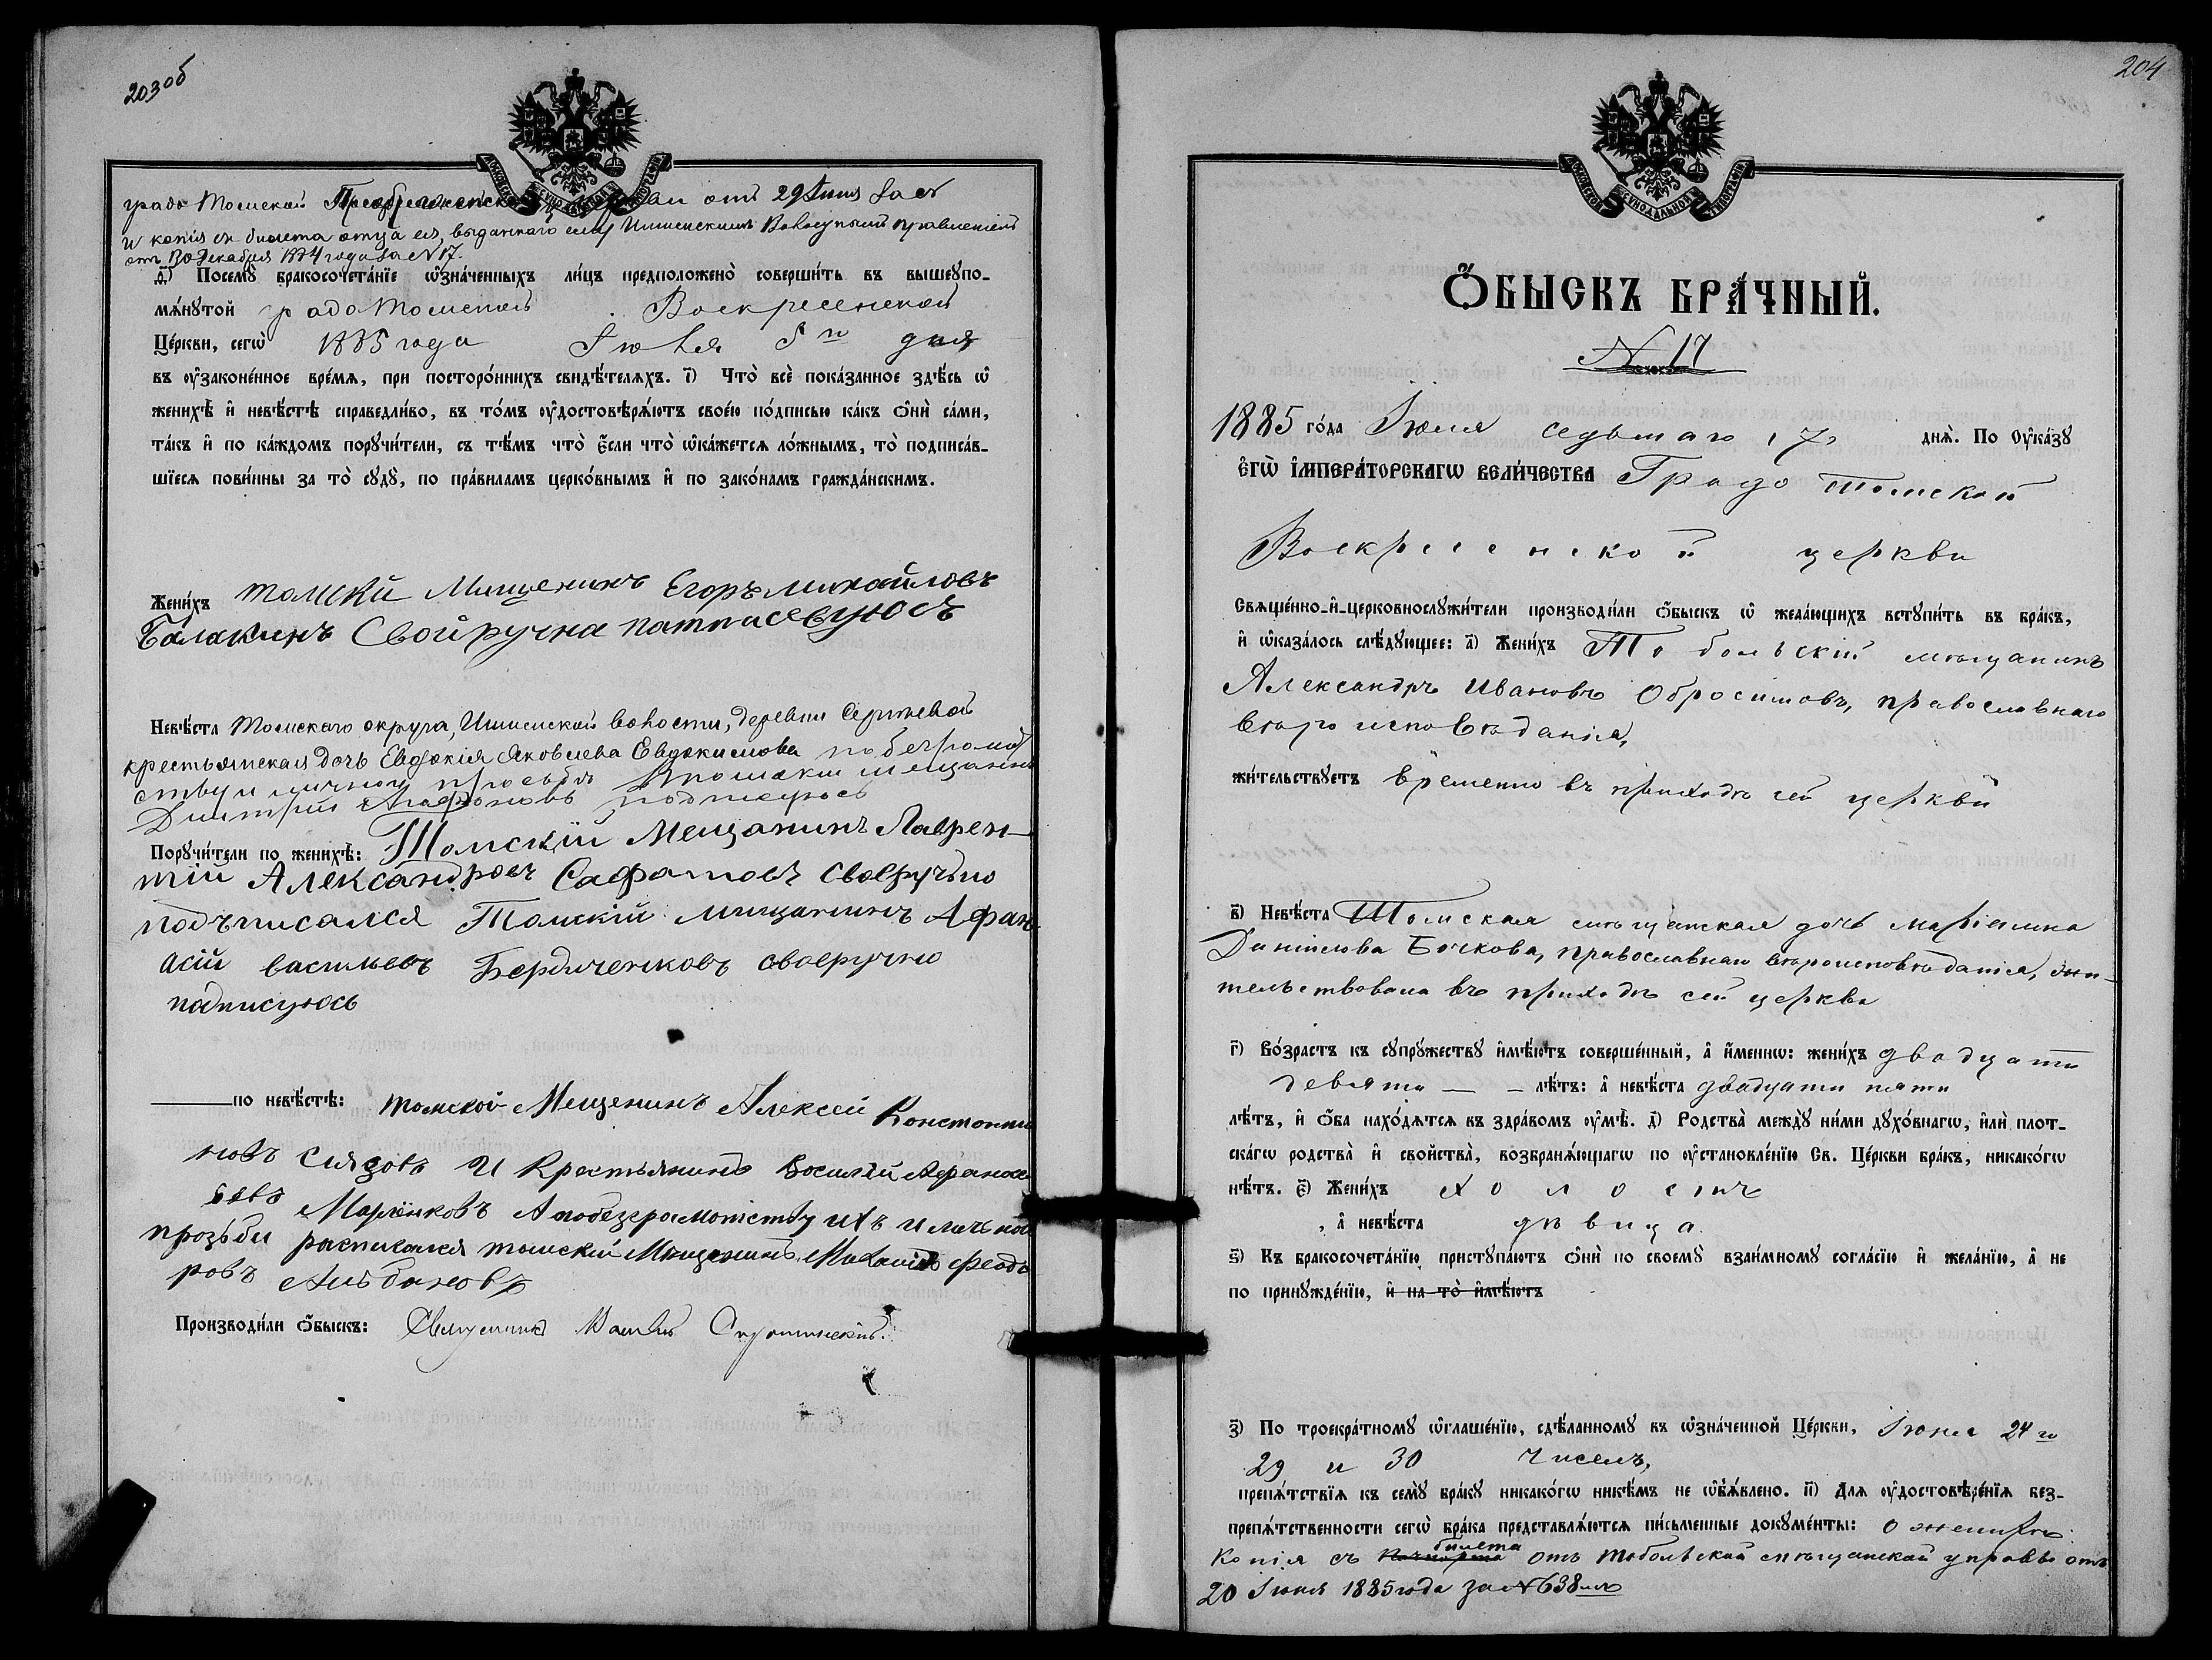 203об
МОСКОВСКОЙ СѴНОДАЛЬНОЙ ТИПОГРАФІИ
градо Томской Преображенской церкви отъ 29 Іюня за №
и копія съ билета отца ея, выданнаго ему Ишимскимъ Волостнымъ Правленіемъ
отъ 30 Декабря 1884 года за №17.
д҃) Посемꙋ̀ бракосочета́нїе ѡ҆зна́ченныхъ ли́цъ предположено̀ соверши́ть въ вышеꙋпо-
мѧ́нꙋтой градо Томской Воскресенской
Це́ркви, сегѡ̀ 1885 года Іюля 5го дня
въ ᲂу҆законе́нное вре́мѧ, при посторо́ннихъ свидѣ́телѧхъ. і҃) Что̀ всѐ пока́занное здѣ́сь ѡ҆
женихѣ̀ и҆ невѣ́стѣ справедли́во, въ то́мъ ᲂу҆достовѣрѧ́ютъ свое́ю по́дписью ка́къ ѻ҆нѝ са́ми,
та́къ и҆ по ка́ждомъ порꙋчи́тели, съ тѣ́мъ что̀ є҆́сли что̀ ѡ҆ка́жетсѧ ло́жнымъ, то̀ подписа́в-
шїесѧ пови́нны за то̀ сꙋдꙋ̀, по пра́виламъ церко́внымъ и҆ по зако́намъ гражда́нскимъ.
Жени́хъ томскй Мищенинъ Егоръ михайловъ
Балакинъ Свойручна патписсуюсъ
Невѣ́ста Томскаго округа, Ишимской волости, деревни Сергеевой
крестьянская дочь Евдокія Яковлева Евдокимова по безграмот
ству и личной просьбѣ Томскій мещанинъ
Дмитрий Агафоновъ подписуюсь
Порꙋчи́тели по женихѣ̀: Томскій Мещанинъ Лаврен-
тій Александровъ Сафатовъ своеручно
подъписался Томскій мищанинъ Афан-
асій васильевъ Бердиченковъ своеручно
падписуюсь
по невѣ́стѣ: томской Мещенинъ Алексей Констонти
новъ Сизовъ И Крестьянинъ Восилей Афанась
евъ Марлёнковъ А побезграмотству ихъ и личьной
прозьби росписался томскій Мищенинъ Феодо
ровъ
Производи́ли ѻ҆́быскъ: Священникъ
204
МОСКОВСКОЙ СѴНОДАЛЬНОЙ ТИПОГРАФІИ
Ѻ҆́БЫСКЪ БРА́ЧНЫЙ.
№ 17
1885 го́да Іюля седьмаго ,7, днѧ̀. По Оу҆ка́зꙋ
є҆гѡ̀ і҆мпера́торскагѡ вели́чества Градо Томской
Воскресенской церкви
Свѧще́нно-и҆-церковнослꙋжи́тели производи́ли ѻ҆́быскъ ѡ҆ жела́ющихъ встꙋпи́ть въ бра́къ,
и҆ ѡ҆каза́лось слѣ́дꙋющее: а҃) Жени́хъ Тобольскій мѣщанинъ
Александръ Ивановъ Обросимовъ, православнаго
вѣроисповѣданія,
жи́тельствꙋетъ временно въ приходѣ сей церкви
в҃) Невѣ́ста Томская мѣщанская дочь Маріамна
Данилова Бочкова, православнаго вѣроисповѣданія, жи-
тельствовала въ приходѣ сей церкви
г҃) Во́зрастъ къ сꙋпрꙋ́жествꙋ и҆мѣ́ютъ соверше́нный, а҆ и҆́меннѡ: жени́хъ двадцати
девяти — — лѣ́тъ: а҆ невѣ́ста двадцати пяти
лѣ́тъ, и҆ ѻ҆́ба нахо́дѧтсѧ въ здра́вомъ ᲂу҆мѣ̀. д҃) Родства̀ междꙋ̀ ни́ми дꙋхо́внагѡ, и҆лѝ пло́т-
скагѡ родства̀ и҆ сво́йства̀, возбранѧ́ющагѡ по ᲂу҆становле́нїю Св. Це́ркви бра́къ, никако́гѡ
нѣ́тъ. є҃) Жени́хъ холостъ
, а҆ невѣ́ста дѣвица.
ѕ҃) Къ бракосочета́нїю пристꙋпа́ютъ ѻ҆нѝ по своемꙋ̀ взаи́мномꙋ согла́сїю и҆ жела́нїю, а҆ не
по принꙋжде́нїю, и҆ на то̀ и҆мѣ́ютъ
з҃) По троекра́тномꙋ ѡ҆глаше́нїю, сдѣ́ланномꙋ въ ѡ҆зна́ченной Це́ркви, Іюня 24го
29 и 30 Чиселъ,
препѧ́тствїѧ къ семꙋ̀ бра́кꙋ никако́гѡ никѣ́мъ не ѡ҆б̾ѧ́влено. и҃) Длѧ ᲂу҆достовѣре́нїѧ без-
препѧ́тственности сегѡ̀ бра́ка представлѧ́ютсѧ пи́сьменные докꙋме́нты: о женихѣ
билета
Копія съ отъ Тобольской мѣщанской управы отъ
20 Іюня 1885 года за №638мъ